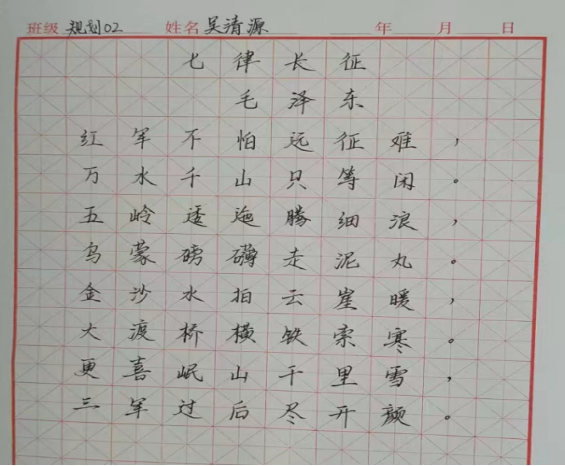 班级 规划02 姓名 吴清源 年 月 日
七律长征
毛泽东
红军不怕远征难，
万水千山只等闲。
五岭透迤腾细浪，
乌蒙磅礴走泥丸。
金沙水拍云崖暖，
大渡桥横铁索寒。
更喜岷山千里雪，
三军过后尽开颜。